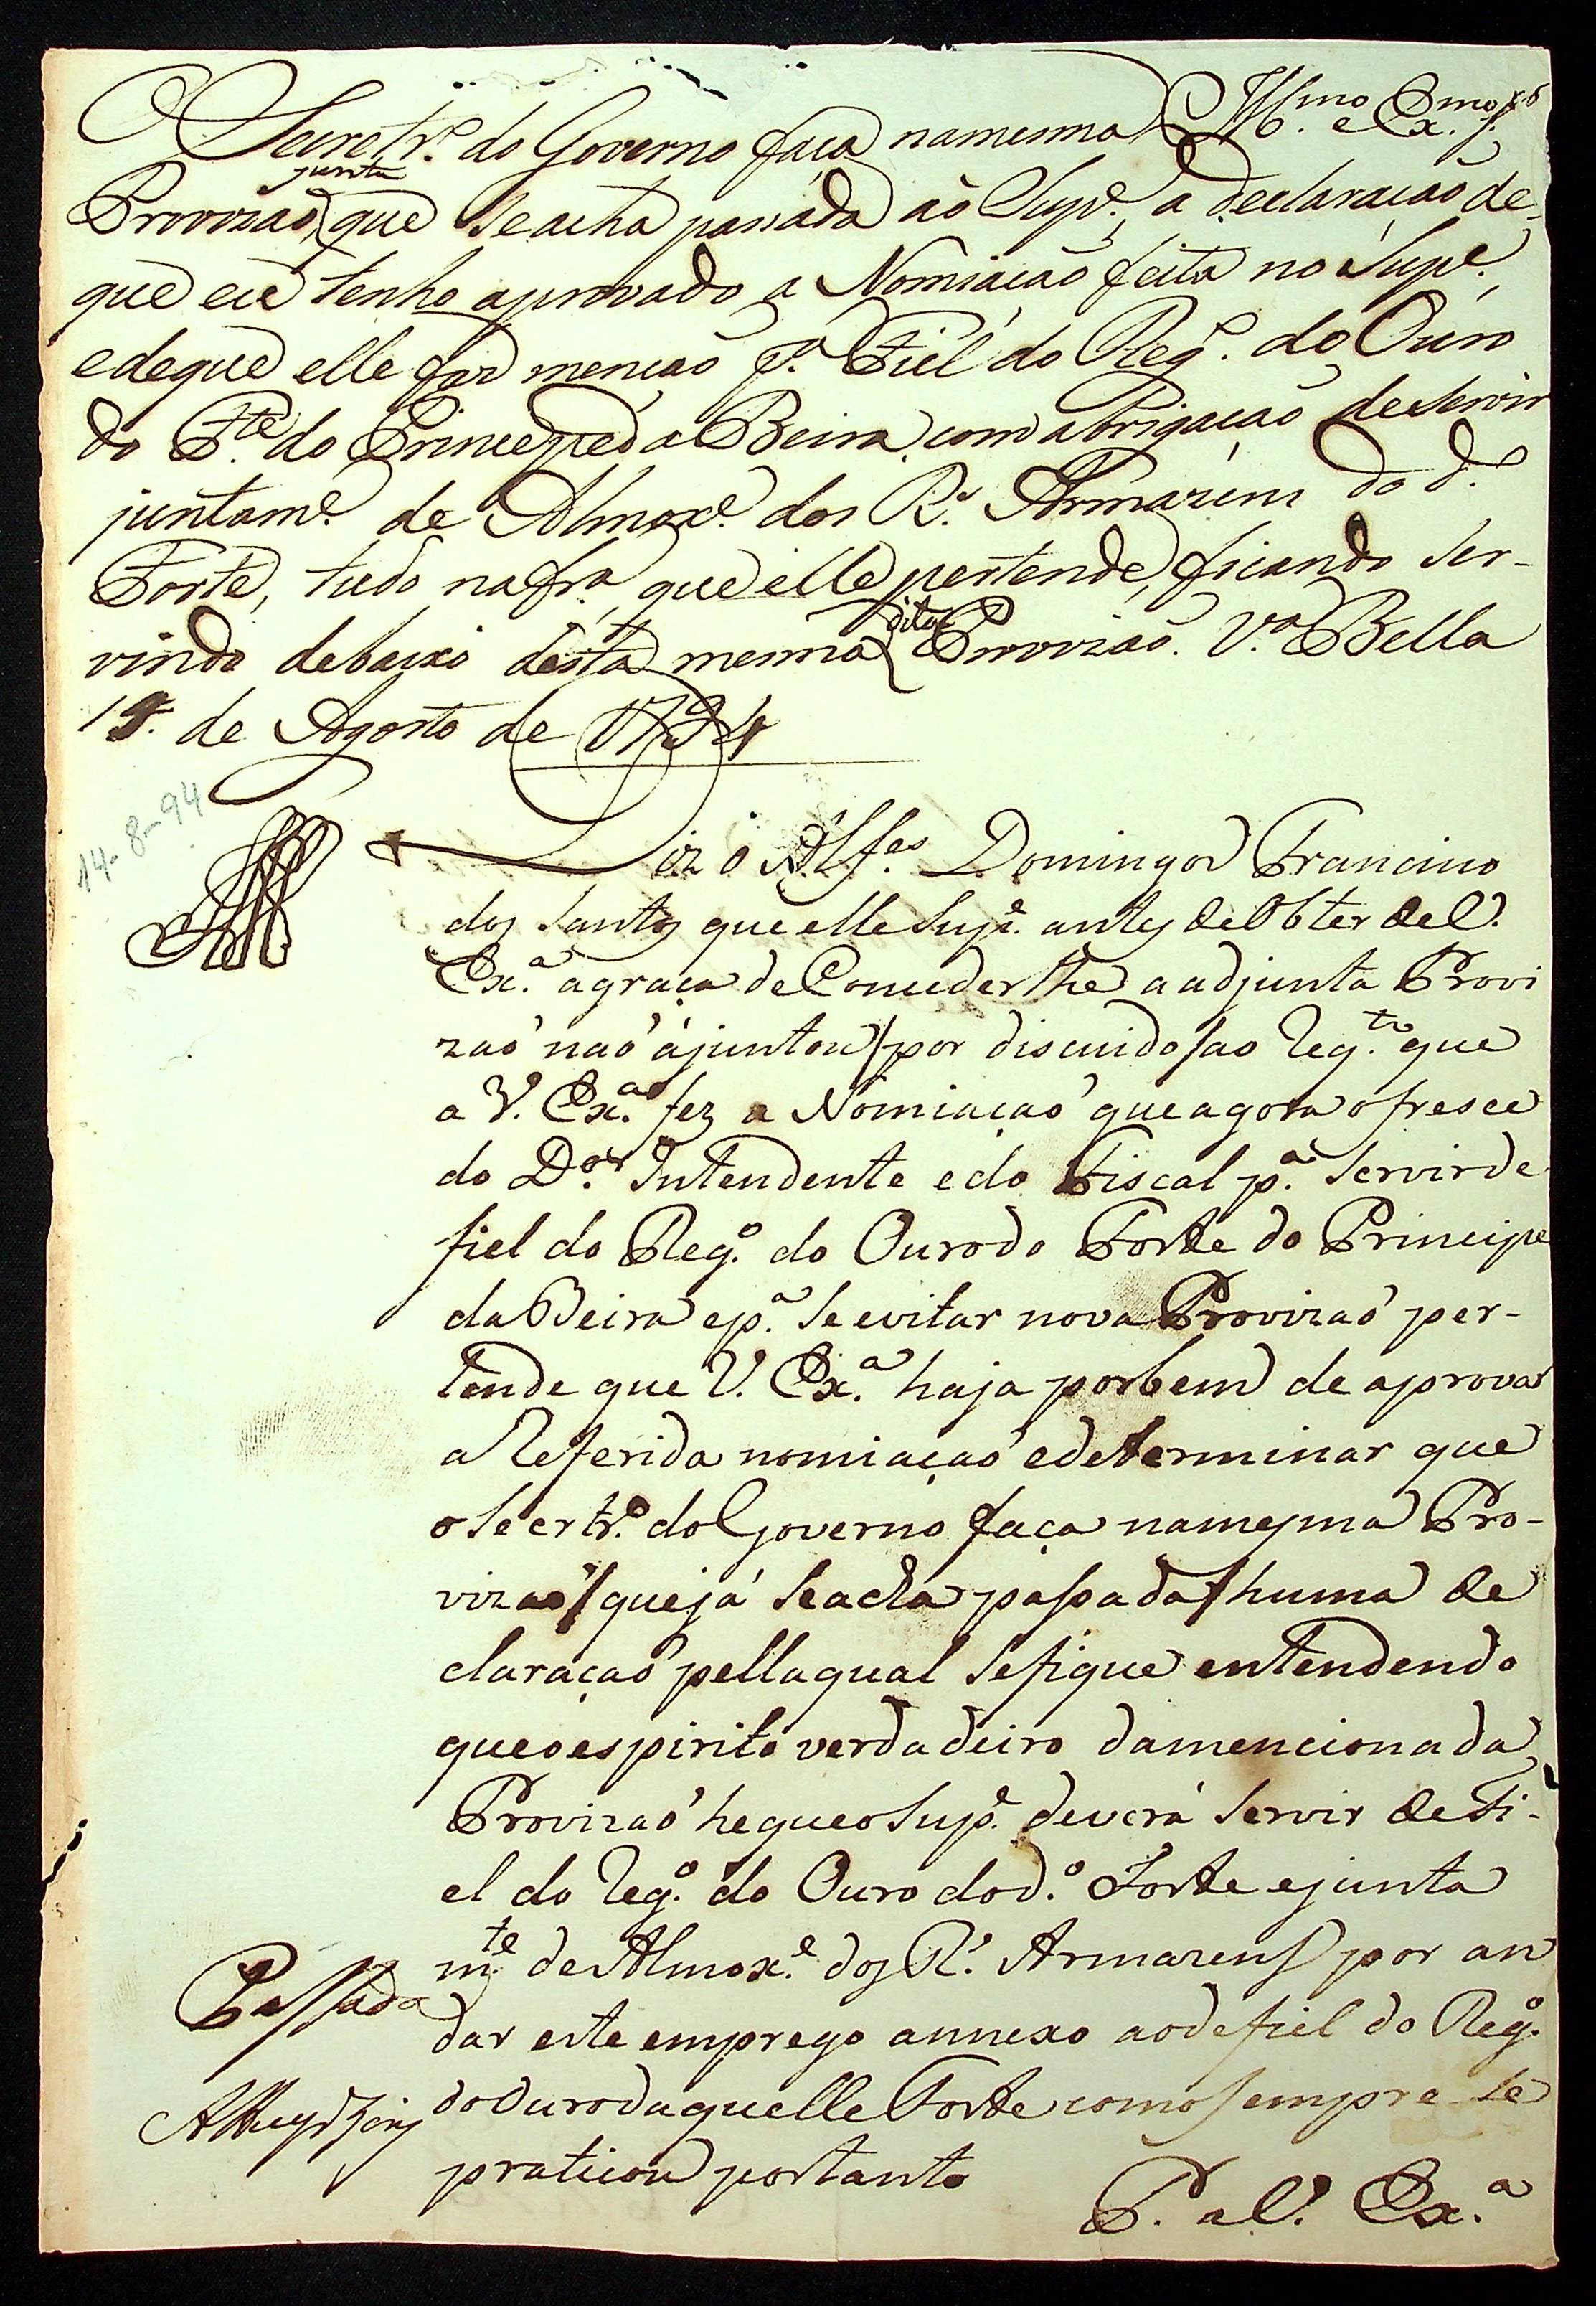 O Secretr.º do Governo faça na mesma Ill.mo e Ex.mo S.or
Provizaõ junta que se acha passada ao Sup.e, a declaraçaõ de
que eu tenho aprovado a Nomiaçaõ feita no Supe.,
e de que elle faz mençaõ p.ª Fiel do Reg.º do Ouro
do F.te do Principe da Beira, com a obrigaçaõ de servir
juntam.e de Almox.e dos R.s Armazens do d.º
Forte, tudo na fr.ª que elle pertende, ficando ser-
vindo debaixo desta mesma dita Provizaõ. V.ª Bella
de Agosto de 1794
14-8-94
Diz o Alf.es Domingos Francisco
dos Santos que elle Sup.e antes de Obter de V.
Ex.ª a graça de Concederlhe a adjunta Provi
zaõ naõ ajuntou /por discuido/ ao Reg.to que
a V. Ex.ª fez a Nomiaçaõ que agora ofresce
do D.or Intendente e do Fiscal p.ª servir de
fiel do Reg.º do Ouro do Forte do Principe
da Beira e p.ª se evitar nova Provizaõ per-
tende que V. Ex.ª haja por bem de aprovar
a Referida nomiaçaõ e determinar que
o Secrtr.º do Governo faça na mesma Pro-
vizaõ /que já se acha passada/ huma de
claraçaõ pella qual se fique entendendo
que o espirito verdadeiro da mencionada
Provizaõ he que o Sup.e deverá servir de Fi-
el do Reg.º do Ouro do d.º Forte e junta
m.te de Almox.e dos R.s Armazens por an
dar este emprego annexo ao de fiel do Reg.º
do Ouro daquelle Forte como sempre se
praticou portanto
Passada
P. a V. Ex.ª